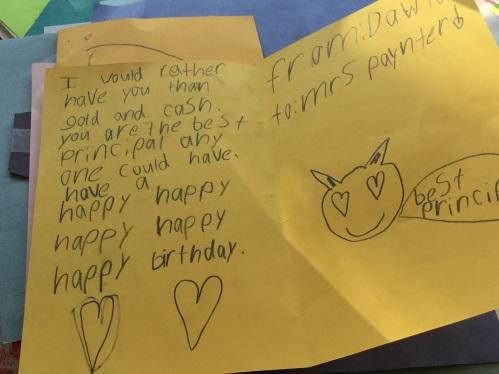 I would rather
have you than
gold and cash.
you are the best
principal any
one could have.
have a
happy happy
happy happy
happy birthday.
from:
to: mrs paynter
best